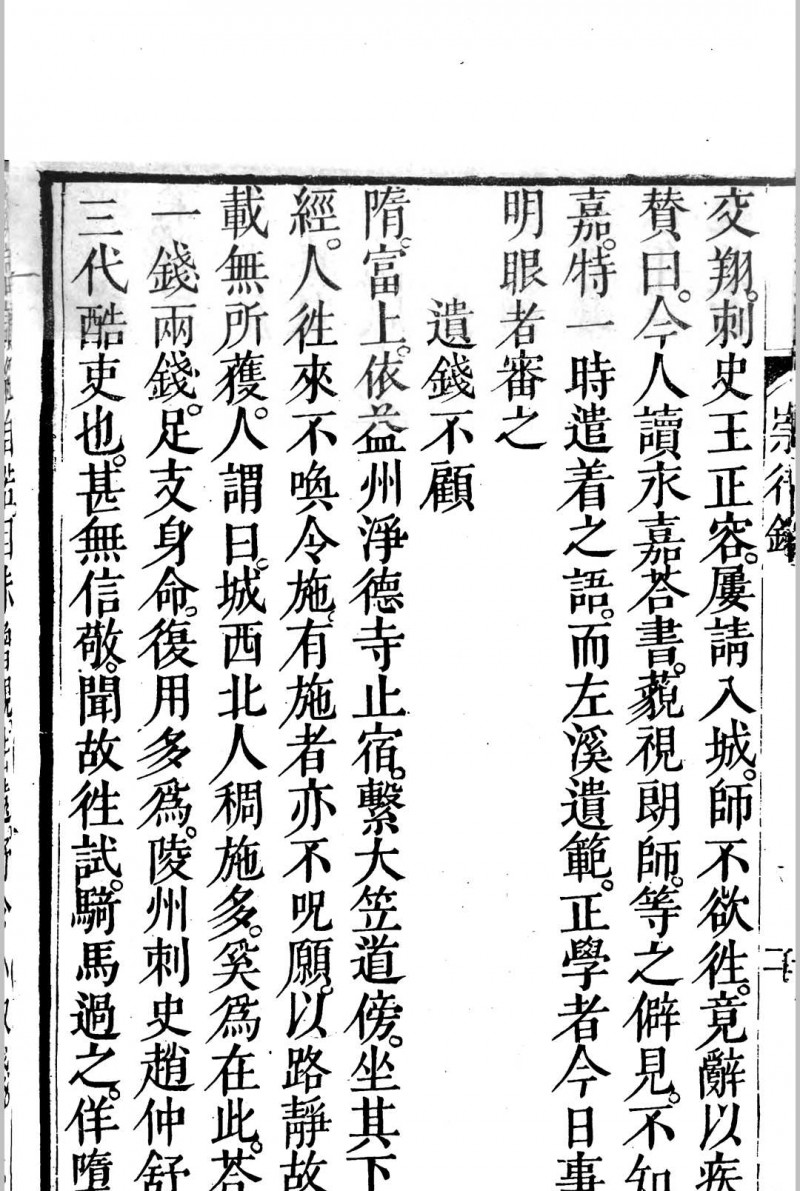 崇行錄
交翔。刺史王正容。屢請入城。師不欲徃。竟辭以疾
賛曰。今人讀永嘉荅書。藐視朗師。等之僻見。不知
嘉。特一時遣着之語。而左溪遺範。正學者今日事
明眼者審之
遺錢不顧
隋。富上。依益州淨德寺止宿。繫大笠道傍。坐其下
經。人徃來不喚令施。有施者亦不呪願。以路靜故
載無所獲。人謂曰。城西北人稠施多。奚爲在此。荅
一錢兩錢。足支身命。復用多爲。陵州刺史趙仲舒
三代酷吏也。甚無信敬。聞故徃試。騎馬過之。佯墮